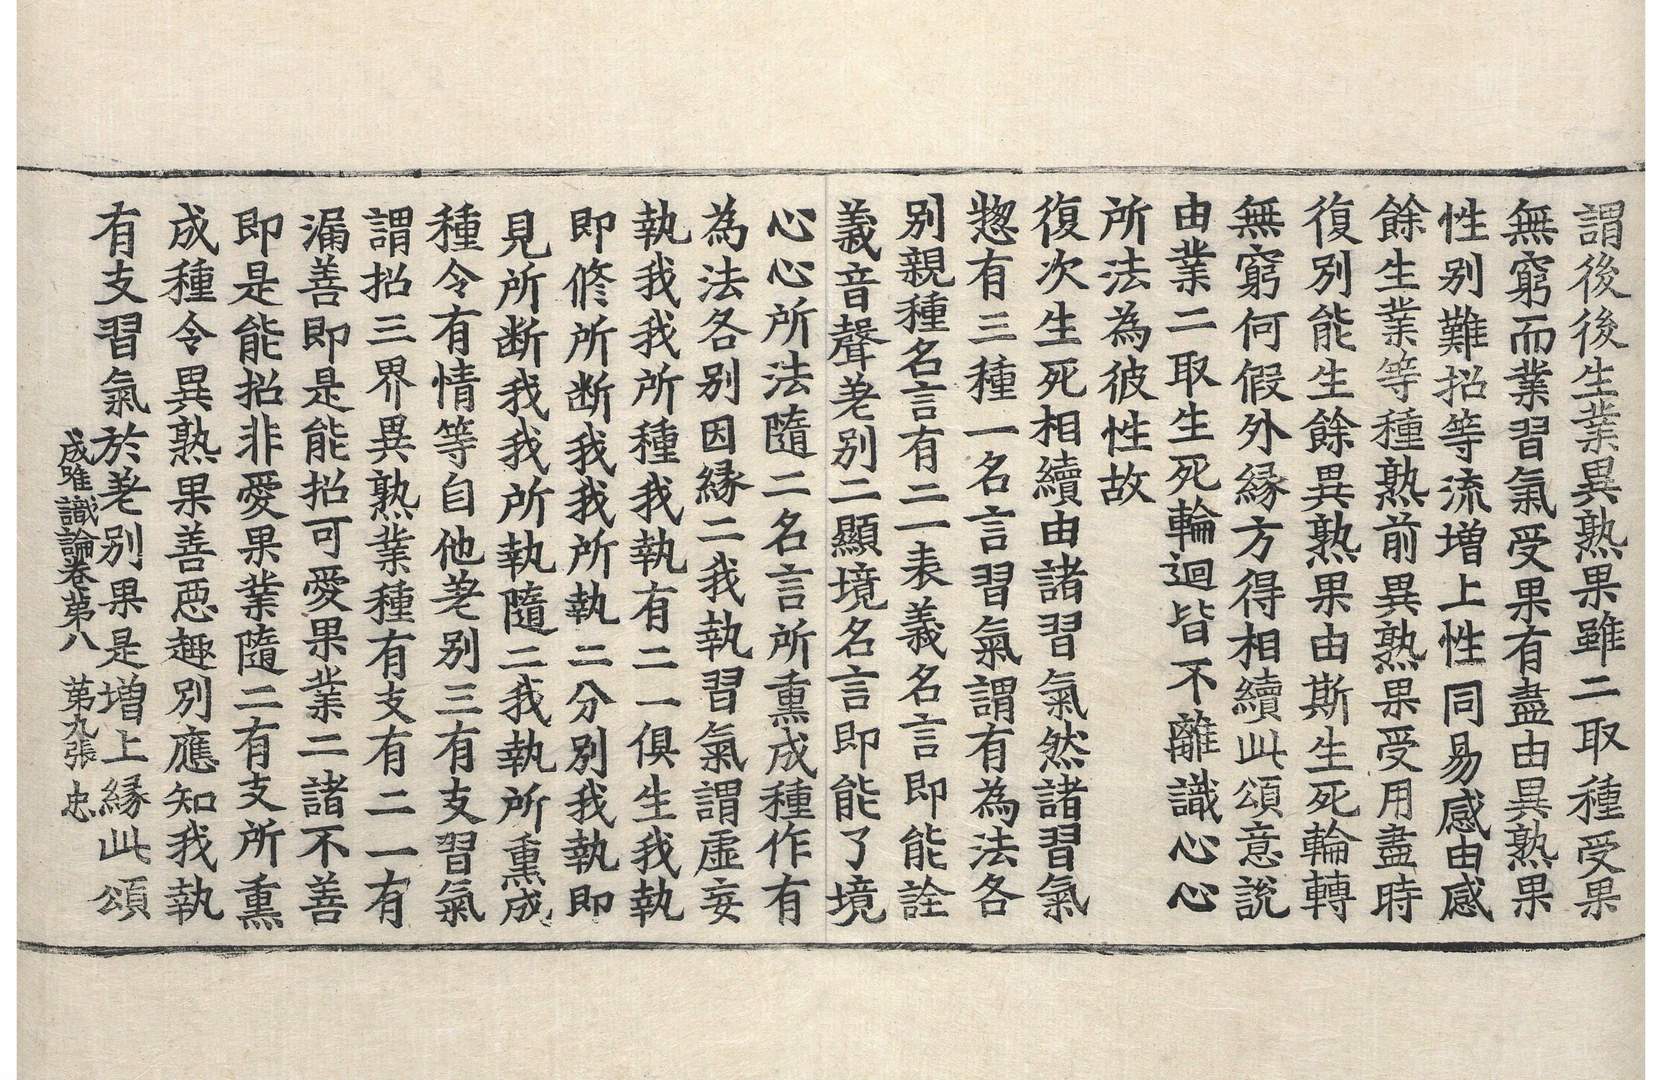 謂後後生業異熟果雖二取種受果
無窮而業習氣受果有盡由異熟果
性別難招等流增上性同易感由感
餘生業等種熟前異熟果受用盡時
復別能生餘異熟果由斯生死輪轉
無窮何假外緣方得相續此頌意說
由業二取生死輪迴皆不離識心心
所法為彼性故
復次生死相續由諸習氣然諸習氣
惣有三種一名言習氣謂有為法各
別親種名言有二一表義名言即能詮
義音聲差別二顯境名言即能了境
心心所法隨二名言所熏成種作有
為法各別因緣二我執習氣謂虛妄
執我我所種我執有二一俱生我執
即修所断我我所執二分別我執即
見所断我我所執隨二我執所熏成
種令有情等自他差別三有支習氣
謂招三界異熟業種有支有二一有
漏善即是能招可愛果業二諸不善
即是能招非愛果業隨二有支所熏
成種令異熟果善惡趣別應知我執
有支習氣於差別果是增上緣此頌
成唯識論卷第八 第九張 忠